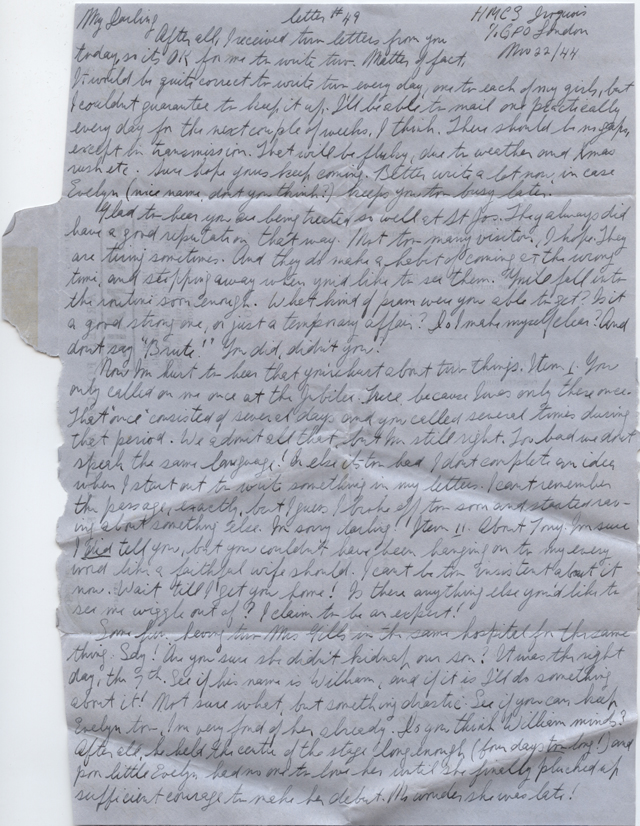 My Darling letter #49 HMCS Iroquois
After all, I received two letters from you c/o GPO London
today, so its OK for me to write two. Matter of fact, Nov 22/44
it would be quite correct to write two every day, one to each of my girls, but
I couldn't guarantee to keep it up. I'll be able to mail one practically
every day for the next couple of weeks, I think. There should be no gaps,
except in transmission. That will be fluky, due to weather and Xmas
rush etc. Sure hope yours keep coming. Better write a lot now, in case
Evelyn (nice name, don't you think?) keeps you too busy later.
Glad to hear you are being treated so well at St Jos. They always did
have a good reputation that way. Not too many visitors, I hope. They
are tiring sometimes. And they do make a habit of coming at the wrong
time, and stopping away when you'd like to see them. You'll fall into
the routine soon enough. What kind of pram were you able to get? Is it
a good strong one, or just a temporary affair? Do I make myself clear? And
don't say "Brute!" You did, didn't you!
Now I'm hurt to hear that you're hurt about two things. Item I. You
only called on me once at the Jubilee. True because I was only there once.
That "once" consisted of several days and you called several times during
that period. We admit all that, but I'm still right. Too bad we don't
speak the same language! Or else its too bad I don't complete an idea
when I start out to write something in my letters. I can't remember
the passage, exactly, but I guess I broke off too soon and started rav-
ing about something else. I'm sorry darling! Item II. About Tony. I'm sure
I did tell you, but you couldn't have been hanging on to my every
word like a faithful wife should. I can't be too insistent about it
now. Wait till I get you home! Is there anything else you'd like to
see me wiggle out of? I claim to be an expert!
Some fun, having two Mrs Hills in the same hospital for the same
thing. Say! Are you sure she didn't kidnap our son? It was the right
day, the 9th. See if his name is William, and if it is I'll do something
about it! Not sure what, but something drastic. See if you can keep
Evelyn too, I'm very fond of her already. Do you think William minds?
After all, he held the centre of the stage long enough (four days too long!) and
poor little Evelyn had no one to love her until she finally plucked up
sufficient courage to make her debut. No wonder she was late!